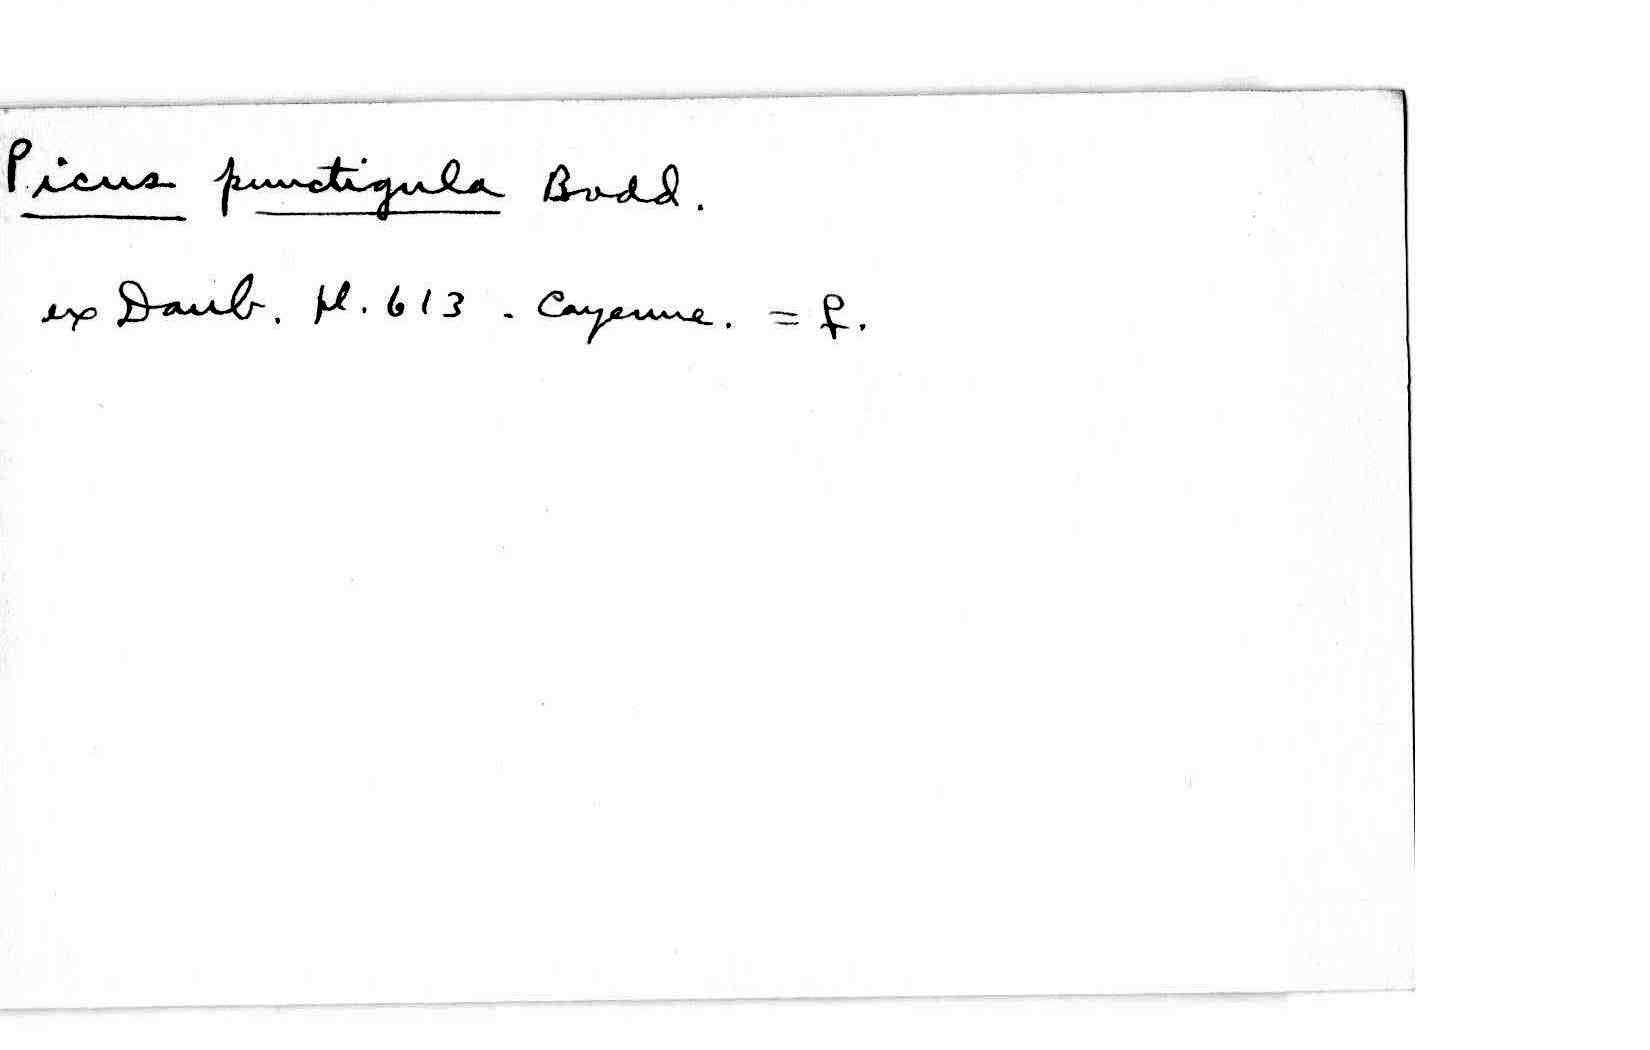 Picus punctigula Bodd.
ex Daub. pl. 613 - Cayenne. = ♀.